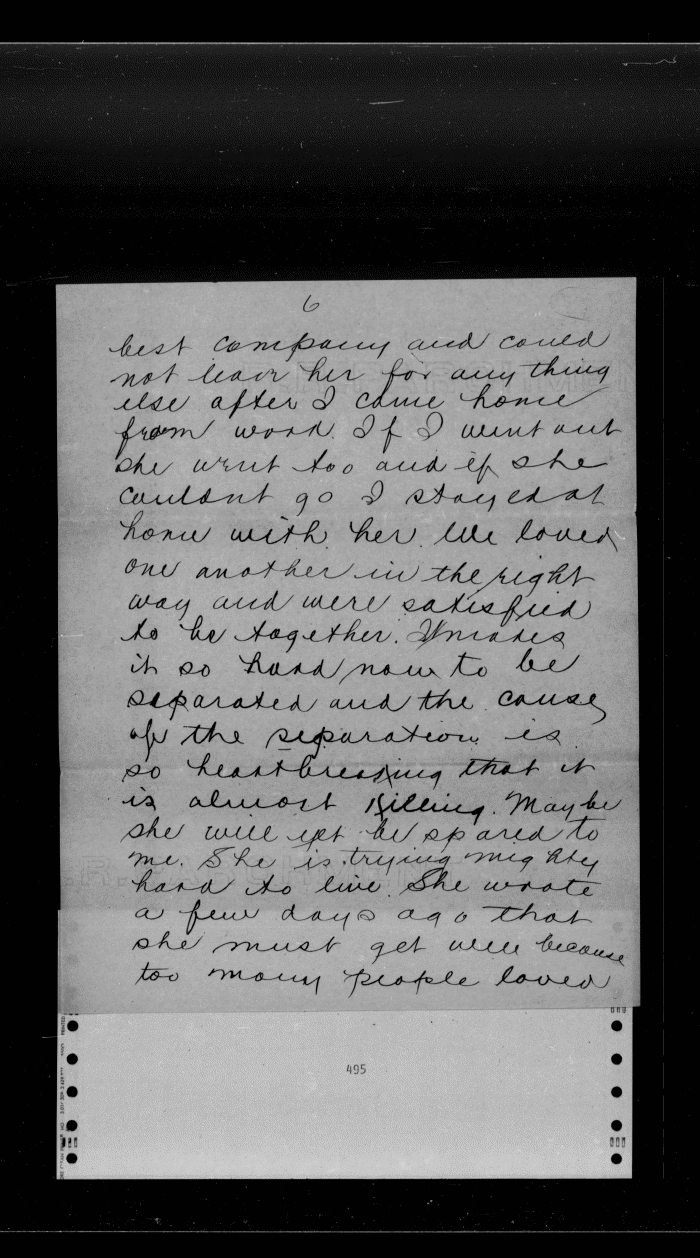 6
best company and could
not leave her for any thing
else after I come home
from work. If I went out
she went too and if she
couldnt go I stayed at
home with her. We loved
one another in the right
way and were satisfied
to be together. It makes
it so hard now to be
separated and the cause
of the separation is
so heartbreaking that it
is almost killing. Maybe
she will yet be spared to
me. She is trying mighty
hard to live. She wrote
a few days ago that
she must get well because
too many people loved
495